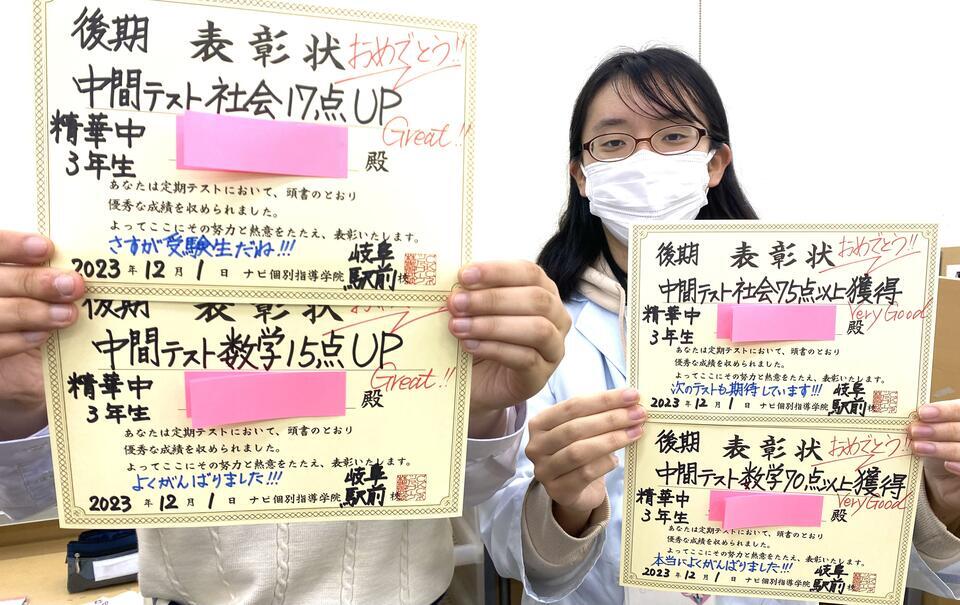 後期 表彰状 おめでとう!!
中間テスト社会17点UP
精華中 Great!!
3年生 殿
あなたは定期テストにおいて、頭書のとおり
優秀な成績を収められました。
よってここにその努力と熱意をたたえ、表彰いたします。
さすが受験生だね!!!
2023年12月1日 ナビ個別指導学院 岐阜駅前校
後期 表彰状
中間テスト数学15点UP
精華中 Great!!
3年生 殿
あなたは定期テストにおいて、頭書のとおり
優秀な成績を収められました。
よってここにその努力と熱意をたたえ、表彰いたします。
よくがんばりました!!!
2023年12月1日 ナビ個別指導学院 岐阜駅前校
後期 表彰状 おめでとう!!
中間テスト社会75点以上獲得
精華中 Very Good
3年生 殿
あなたは定期テストにおいて、頭書のとおり
優秀な成績を収められました。
よってここにその努力と熱意をたたえ、表彰いたします。
次のテストも期待しています!!!
2023年12月1日 ナビ個別指導学院 岐阜駅前
後期 表彰状 おめでとう!!
中間テスト数学70点以上獲得
精華中 Very Good
3年生 殿
あなたは定期テストにおいて、頭書のとおり
優秀な成績を収められました。
よってここにその努力と熱意をたたえ、表彰いたします。
本当によくがんばりました!!!
2023年12月1日 ナビ個別指導学院 岐阜駅前